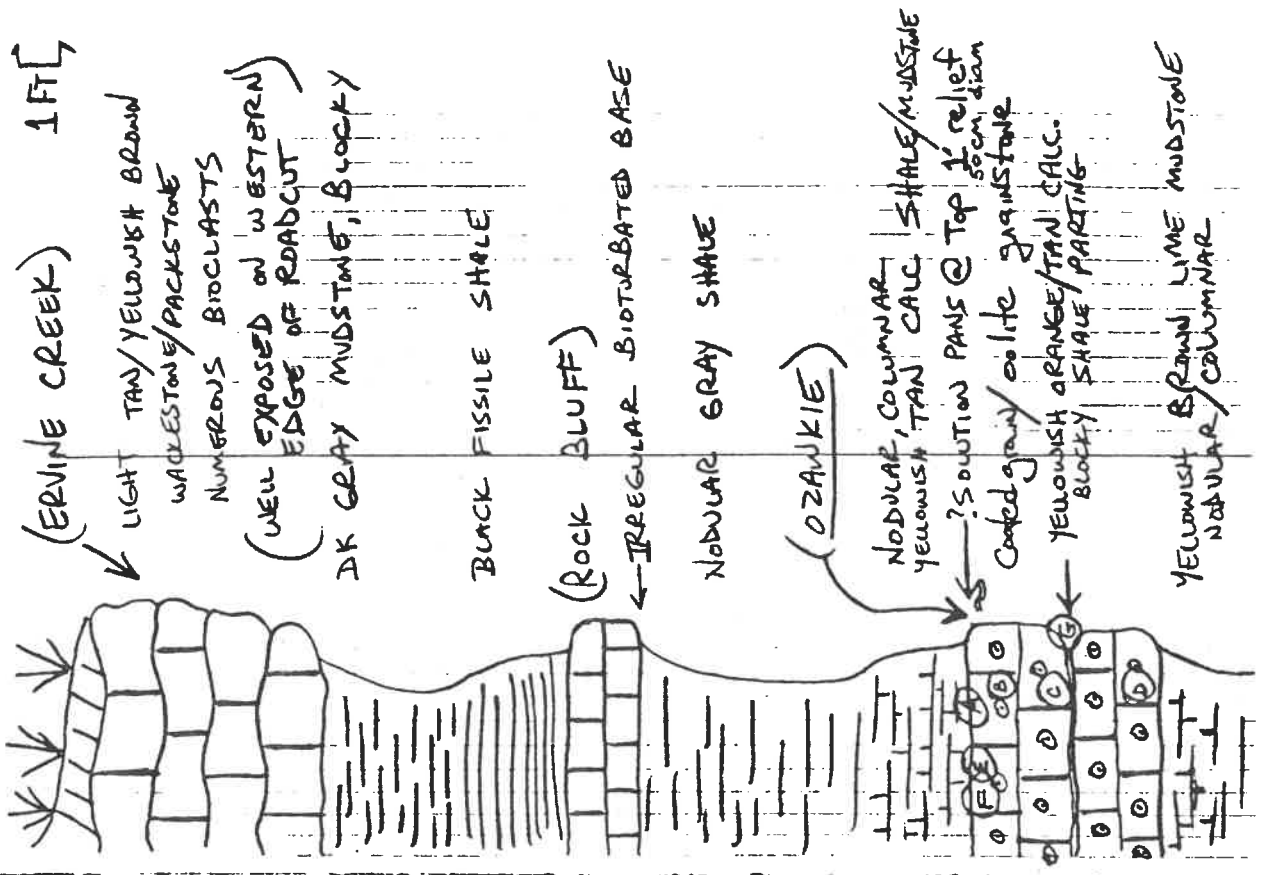 1 FT
(ERVINE CREEK)
LIGHT TAN/YELLOWISH BROWN
WACKESTONE/PACKSTONE
NUMEROUS BIOCLASTS
(WELL EXPOSED ON WESTERN
EDGE OF ROADCUT)
DK GRAY MUDSTONE, BLOCKY
BLACK FISSILE SHALE
(ROCK BLUFF)
IRREGULAR BIOTURBATED BASE
NODULAR GRAY SHALE
(OZAWKIE)
NODULAR, COLUMNAR
YELLOWISH TAN CALC SHALE/MUDSTONE
?SOLUTION PANS @ Top 1' relief
50cm diam
Coated grain/oolite grainstone
YELLOWISH ORANGE/TAN CALC.
BLOCKY SHALE PARTING
YELLOWISH BROWN LIME MUDSTONE
NODULAR/COLUMNAR
A
B
C
D
E
F
G